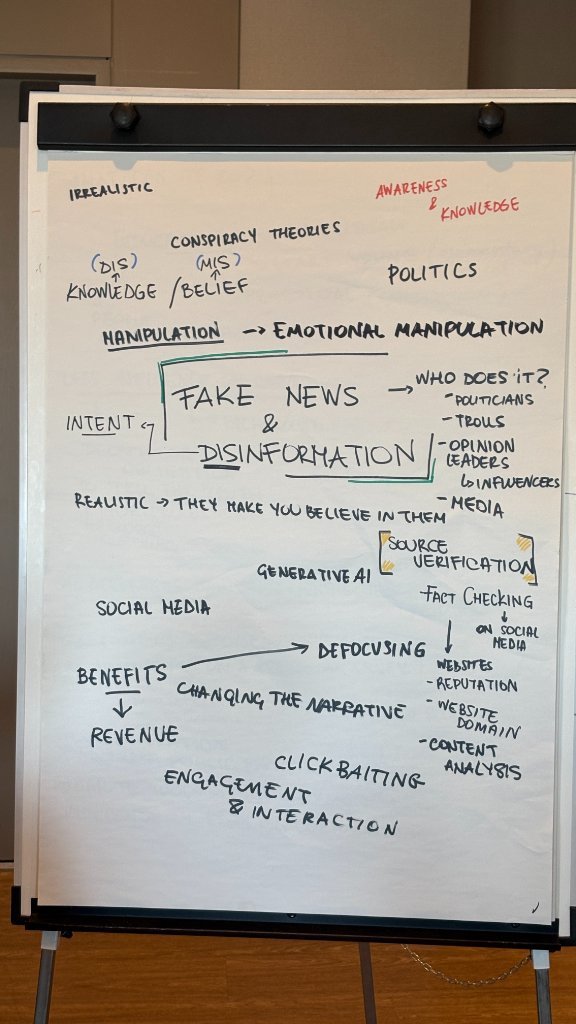 IRREALISTIC
AWARENESS
&
KNOWLEDGE
CONSPIRACY THEORIES
(DIS) (MIS)
↑ ↑
KNOWLEDGE / BELIEF
POLITICS
MANIPULATION → EMOTIONAL MANIPULATION
FAKE NEWS
&
DISINFORMATION
INTENT
→ WHO DOES IT?
- POLITICIANS
- TROLLS
- OPINION
LEADERS
↳ INFLUENCERS
- MEDIA
REALISTIC → THEY MAKE YOU BELIEVE IN THEM
[SOURCE
VERIFICATION]
GENERATIVE AI
FACT CHECKING
↓
ON SOCIAL
MEDIA
↓
WEBSITES
- REPUTATION
- WEBSITE
DOMAIN
- CONTENT
ANALYSIS
SOCIAL MEDIA
BENEFITS → DEFOCUSING
↓
REVENUE
CHANGING THE NARRATIVE
CLICKBAITING
ENGAGEMENT
& INTERACTION